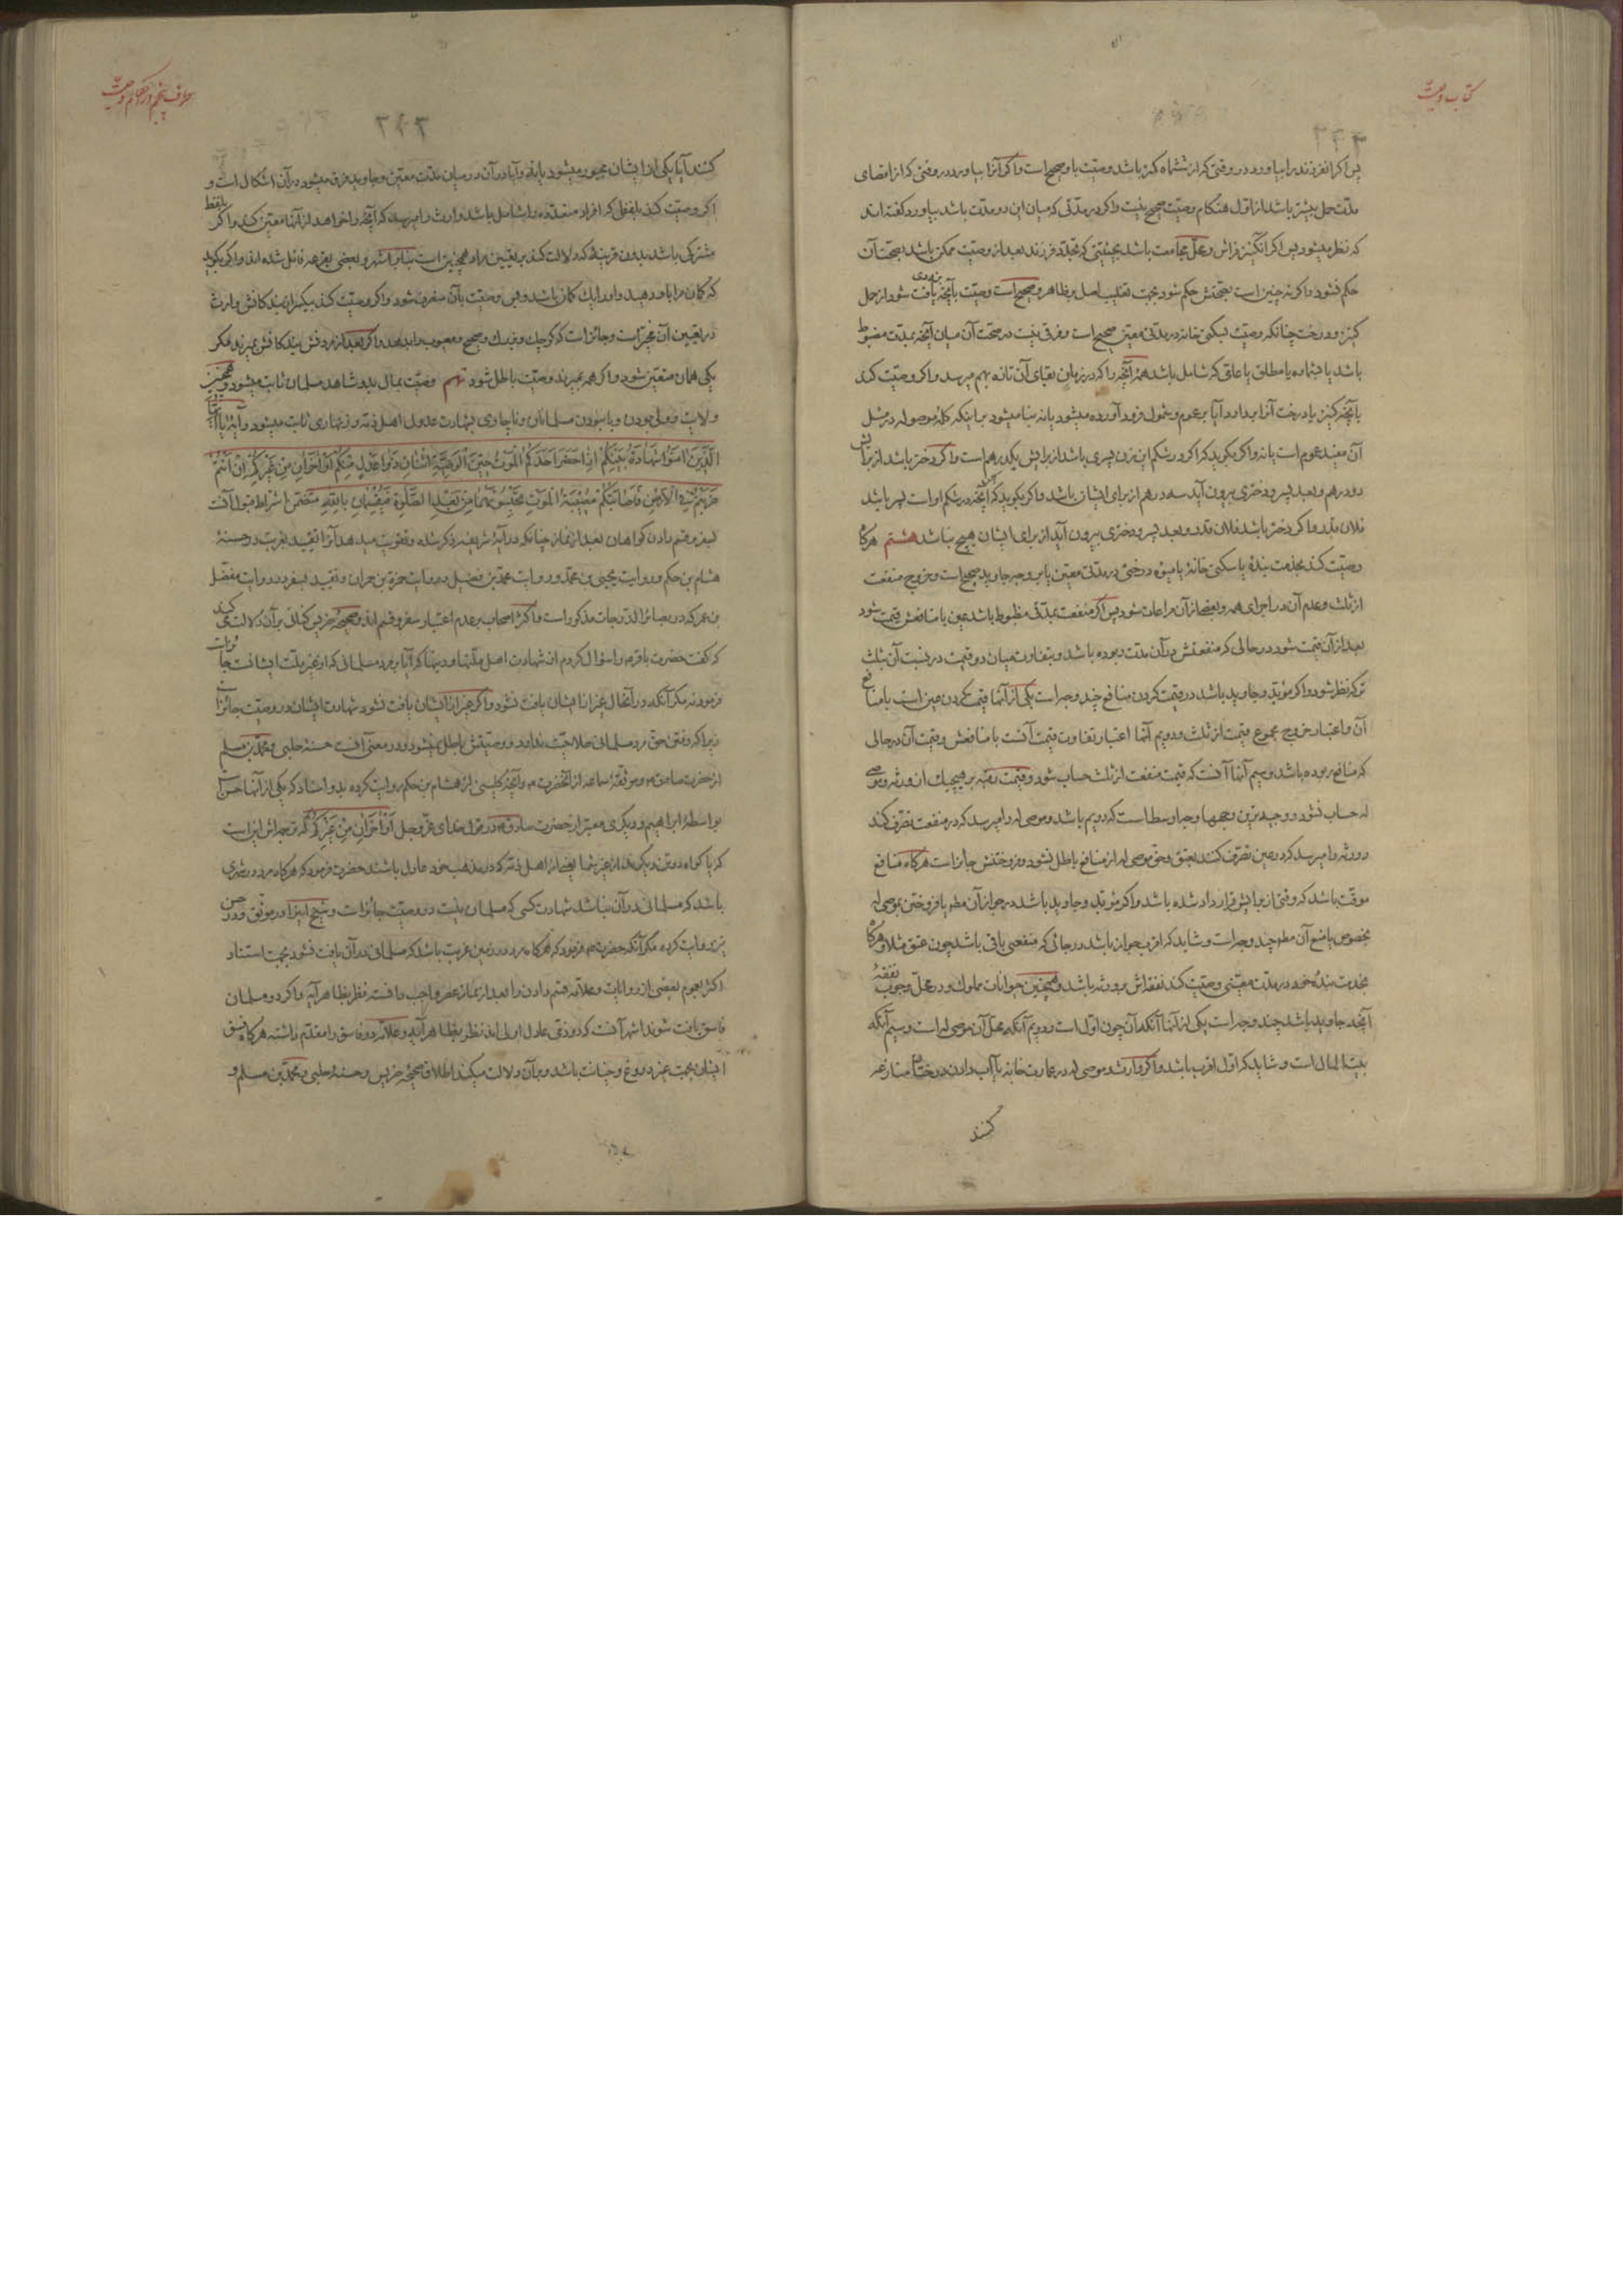 کتاب وصیت
پس اگر آنفرزند را بیاورد در وقتی که از ششماه کمتر باشد وصیت باو صحیح است و اگر آنرا بیاورد در وقتی که از اقصای
مدت حمل بیشتر باشد از اول هنگام وصیت صحیح نیست و اگر در مدتی که میان این دو مدت باشد بیاورد گفته اند
که نظر میشود پس اگر آنکنیز فراش و محل مجامعت باشد بحیثیتی که تجدد فرزند بعد از وصیت ممکن باشد بصحت آن
حکم نشود و اگر نه چنین است بصحتش حکم شود بجهت تغلیب اصل بر ظاهر و صحیح است وصیت بآنچه یافت شود از حمل
کنیز و درخت چنانکه وصیت بسکنی خانه در مدتی معین صحیح است و فرقی نیست در صحت آن میان آنچه بمدت مضبوط
باشد یا بشماره یا مطلق یا عامی که شامل باشد همه آنچه را که در زمان بقای آن تازه بهم میرسد و اگر وصیت کند
بآنچه کنیز یا درخت آنرا بردارد آیا بر عموم و شمول فرود آورده میشود یا نه بنا میشود بر اینکه کلمه موصوله در مثل
آن مفید عموم است یا نه و اگر بگوید که اگر در شکم این زن پسری باشد از برایش یکدرهم است و اگر دختر باشد از برایش
دو درهم و بعد پسر و دختری بیرون آید سه درهم از برای ایشان باشد و اگر بگوید که اگر آنچه در شکم او است پسر باشد
فلان قدر و اگر دختر باشد فلان قدر و بعد پسر و دختری بیرون آید از برای ایشان هیچ نباشد هشتم هرگاه
وصیت کند بخدمت بنده یا سکنی خانه یا میوه درختی در مدتی معین یا بر وجه جاوید صحیح است و خروج منفعت
از ثلث و عدم آن در اجرای همه و بعضی از آن مراعات شود پس اگر منفعت بمدتی مضبوط باشد عین با منافعش قیمت شود
بعد از آن قیمت شود در حالی که منفعتش در آن مدت ربوده باشد و بتفاوت میان دو قیمت در نسبت آن بثلث
ترکه نظر شود و اگر مؤبد و جاوید باشد در قیمت کردن منافع چند وجه است یکی از آنها قیمت کردن عین است با منافع
آن و اعتبار خروج مجموع قیمت از ثلث و دویم آنها اعتبار تفاوت قیمت آنست با منافعش و قیمت آن در حالی
که منافع ربوده باشد و سیم آنها آنست که قیمت منفعت از ثلث حساب شود و قیمت رقبه بر هیچیک از ورثه و موصی
له حساب نشود و وجیه ترین وجهها وجه اوسط است که دویم باشد و موصی له را میرسد که در منفعت تصرف کند
و ورثه را میرسد که در عین تصرف کنند بعتق و حق موصی له از منافع باطل نشود و فروختنش جایز است هرگاه منافع
موقت باشد که وقتی از برایش قرار داد شده باشد و اگر مؤبد و جاوید باشد در جواز آن مطم یا فروختن بموصی له
بخصوص یا منع آن مطم چند وجه است و شاید که اقرب جواز باشد در جائی که منفعتی باقی باشد چون عتق مثلا و هرگاه
بخدمت بنده خود در مدت معینی وصیت کند نفقه اش بر ورثه باشد و همچنین حیوانات مملوک و در محل وجوب نفقه
آنچه جاوید باشد چند وجه است یکی از آنها آنکه آن چون اول است و دویم آنکه محل آن موصی له است و سیم آنکه
بیت المال است و شاید که اول اقرب باشد و اگر وارث و موصی له در عمارت خانه یا آب دادن درختان منازعه
کنند
طرف پنجم در احکام وصیت
۲۴۳
کنند آیا یکی از ایشان مجبور میشود یا نه و آیا در آن در میان مدت معین و جاوید فرق میشود در آن اشکال است و
اگر وصیت کند بلفظی که افراد متعدده را شامل باشد وارث را میرسد که آنچه را خواهد از آنها معین کند و اگر بلفظ
مشترکی باشد بدون قرینه که دلالت کند بر تعیین مراد همچنین است بنا بر اشهر و بعضی بقرعه قائل شده اند و اگر بگوید
که کمان مرا باو دهید و او را یک کمان باشد و بس وصیت بآن منصرف شود و اگر وصیت کند بیکی از بندگانش وارث
در تعیین آن مخیر است و جائز است که کوچک و بزرگ و صحیح و معیوب را بدهد و اگر بعد از مردنش بندگانش بمیرند مگر
یکی همان متعین شود و اگر همه بمیرند وصیت باطل شود نهم وصیت بمال بدو شاهد مسلمان ثابت میشود و همچنین
ولایت و وصی بودن و با نبودن مسلمانان و ناچاری بشهادت عدول اهل ذمه در زنهاری ثابت میشود و آیه یا ایها
الَّذِینَ آمَنُوا شَهَادَةُ بَیْنِکُمْ اِذَا حَضَرَ اَحَدَکُمُ الْمَوْتُ حِینَ الْوَصِیَّةِ اثْنَانِ ذَوَا عَدْلٍ مِنْکُمْ اَوْ آخَرَانِ مِنْ غَیْرِکُمْ اِنْ اَنْتُمْ
ضَرَبْتُمْ فِی الْاَرْضِ فَاَصَابَتْکُمْ مُصِیبَةُ الْمَوْتِ تَحْبِسُونَهُمَا مِنْ بَعْدِ الصَّلٰوةِ فَیُقْسِمَانِ بِاللّٰهِ متضمن اشراط قبول آنست
بسفر و قسم دادن گواهان بعد از نماز چنانکه در آیه شریفه ذکر شده و تقویت میدهد آنرا تقیید بغربت در حسنه
هشام بن حکم و روایت یحیی بن محمد و روایت محمد بن فضیل و روایت حمزة بن حمران و تقیید بسفر در روایت مفضل
بن عمر که در بصائر الدرجات مذکور است و اکثر اصحاب بر عدم اعتبار سفر و قسم اند و صحیحه ضریس کناسی بر آن دلالت میکند
که گفت حضرت باقر ع را سؤال کردم از شهادت اهل ملتها و دینها که آیا بر مرد مسلمانی که از غیر ملت ایشانست جائز است
فرمود نه مگر آنکه در آنحال غیر از ایشان یافت نشود و اگر غیر از ایشان یافت نشود شهادت ایشان در وصیت جائز است
زیرا که رفتن حق مرد مسلمانی صلاحیت ندارد و وصیتش باطل نمیشود و در معنی آنست حسنه حلبی و محمد بن مسلم
از حضرت صادق ع و موثقه سماعه از آنحضرت ع و آنچه کلینی از هشام بن حکم روایت کرده بدو اسناد که یکی از آنها حسن است
بواسطه ابراهیم و دیگری معتبر از حضرت صادق ع در قول خدای عز و جل اَوْ آخَرَانِ مِنْ غَیْرِکُمْ که ترجمه اش اینست
باشد که مسلمانی در آن نباشد شهادت کسی که مسلمان نیست در وصیت جائز است و شیخ اینرا در موثق و در حسن
نیز روایت کرده مگر آنکه حضرت ع فرمود که هرگاه مرد در زمین غربت باشد که مسلمانی در آن یافت نشود بجهت استناد
اکثر بعموم بعضی از روایات و علامه قسم دادن را بعد از نماز عصر واجب دانسته نظر بظاهر آیه و اگر دو مسلمان
فاسق یافت شوند اشهر آنست که دو ذمی عادل اولی اند نظر بظاهر آیه و علامه دو فاسق را مقدم داشته هرگاه فسق
ایشان بجهت غیر دروغ و خیانت باشد و بر آن دلالت میکند اطلاق صحیحه ضریس و حسنه حلبی و محمد بن مسلم و